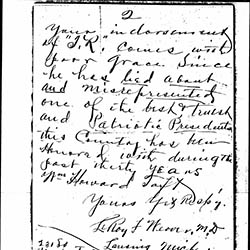 2
Your indorsement
of "T.R." comes with
poor grace. Since
he has lied about
and misrepresented
one of the best & Truest
and Patriotic Presidents
this Country has been
Honored with during the
past thirty years
Wm Howard Taft
Yours
LeRoy F. Weaver, M.D
Lansing Mich